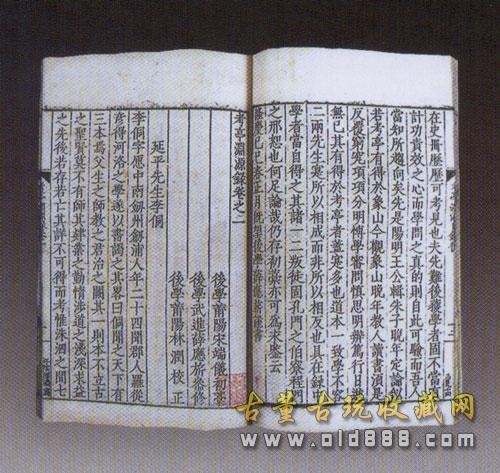 在史冊歷歷可考見也夫先難後獲學者固不當
計功責效之心而學問之真的則自此可驗而吾人
當知所趨向矣先是陽明王公輯朱子晚年定論
若考亭有得於象山今觀象山晚年教人讀書須是
反覆窮究項項分明博學審問慎思明辨篤行日
無已其有得於考亭者蓋亦多也道本一致學不
二兩先生寔所以相成而非所以相反也具在錄
學者當自得之其諸一二叛徒固孔門之伯寮程門
之邢恕也何足論哉仍存初藁亦可為永鑒云
隆慶己巳春正月既望後學薛應旂謹書
考亭淵源錄卷之二
後學莆陽宋端儀初稿
後學武進薛應旂參修
後學莆陽林潤校正
延平先生李侗
李侗字愿中南劒州劒浦人年二十四聞郡人羅從
彥得河洛之學遂以書謁之其畧曰侗聞之天下有
三本焉父生之師教之君治之闕其一則本不立古
之聖賢莫不有師其肄業之勤惰涉道之淺深求益
之先後若存若亡其詳不可得而考惟洙泗之間七
古董古玩收藏网
www.old888.com